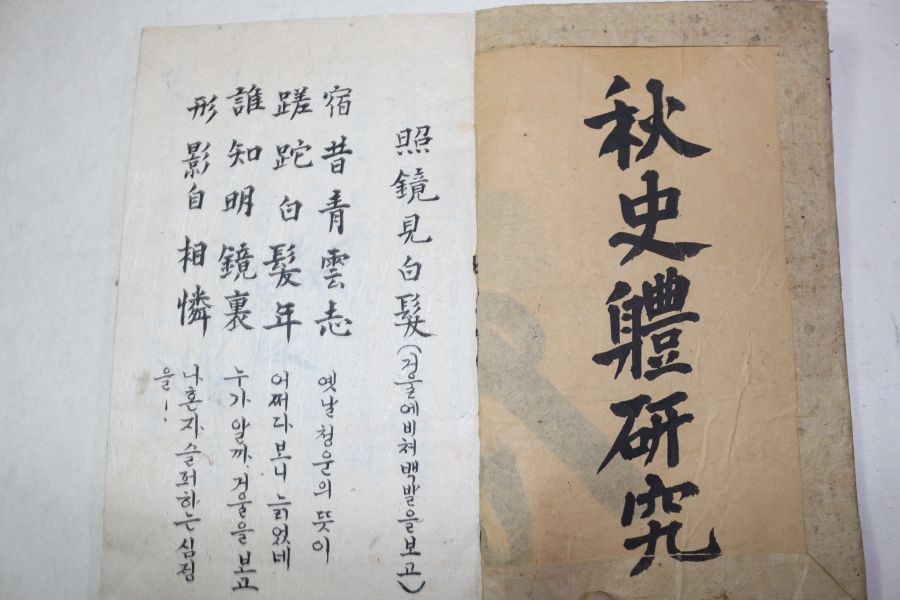 秋史軆研究
照鏡見白髮(거울에비쳐백발을보고)
宿昔青雲志 옛날 청운의 뜻이
蹉跎白髮年 어쩌다보니 늙었네
誰知明鏡裏 누가 알까 거울을 보고
形影自相憐 나혼자 슬퍼하는 심정
을!